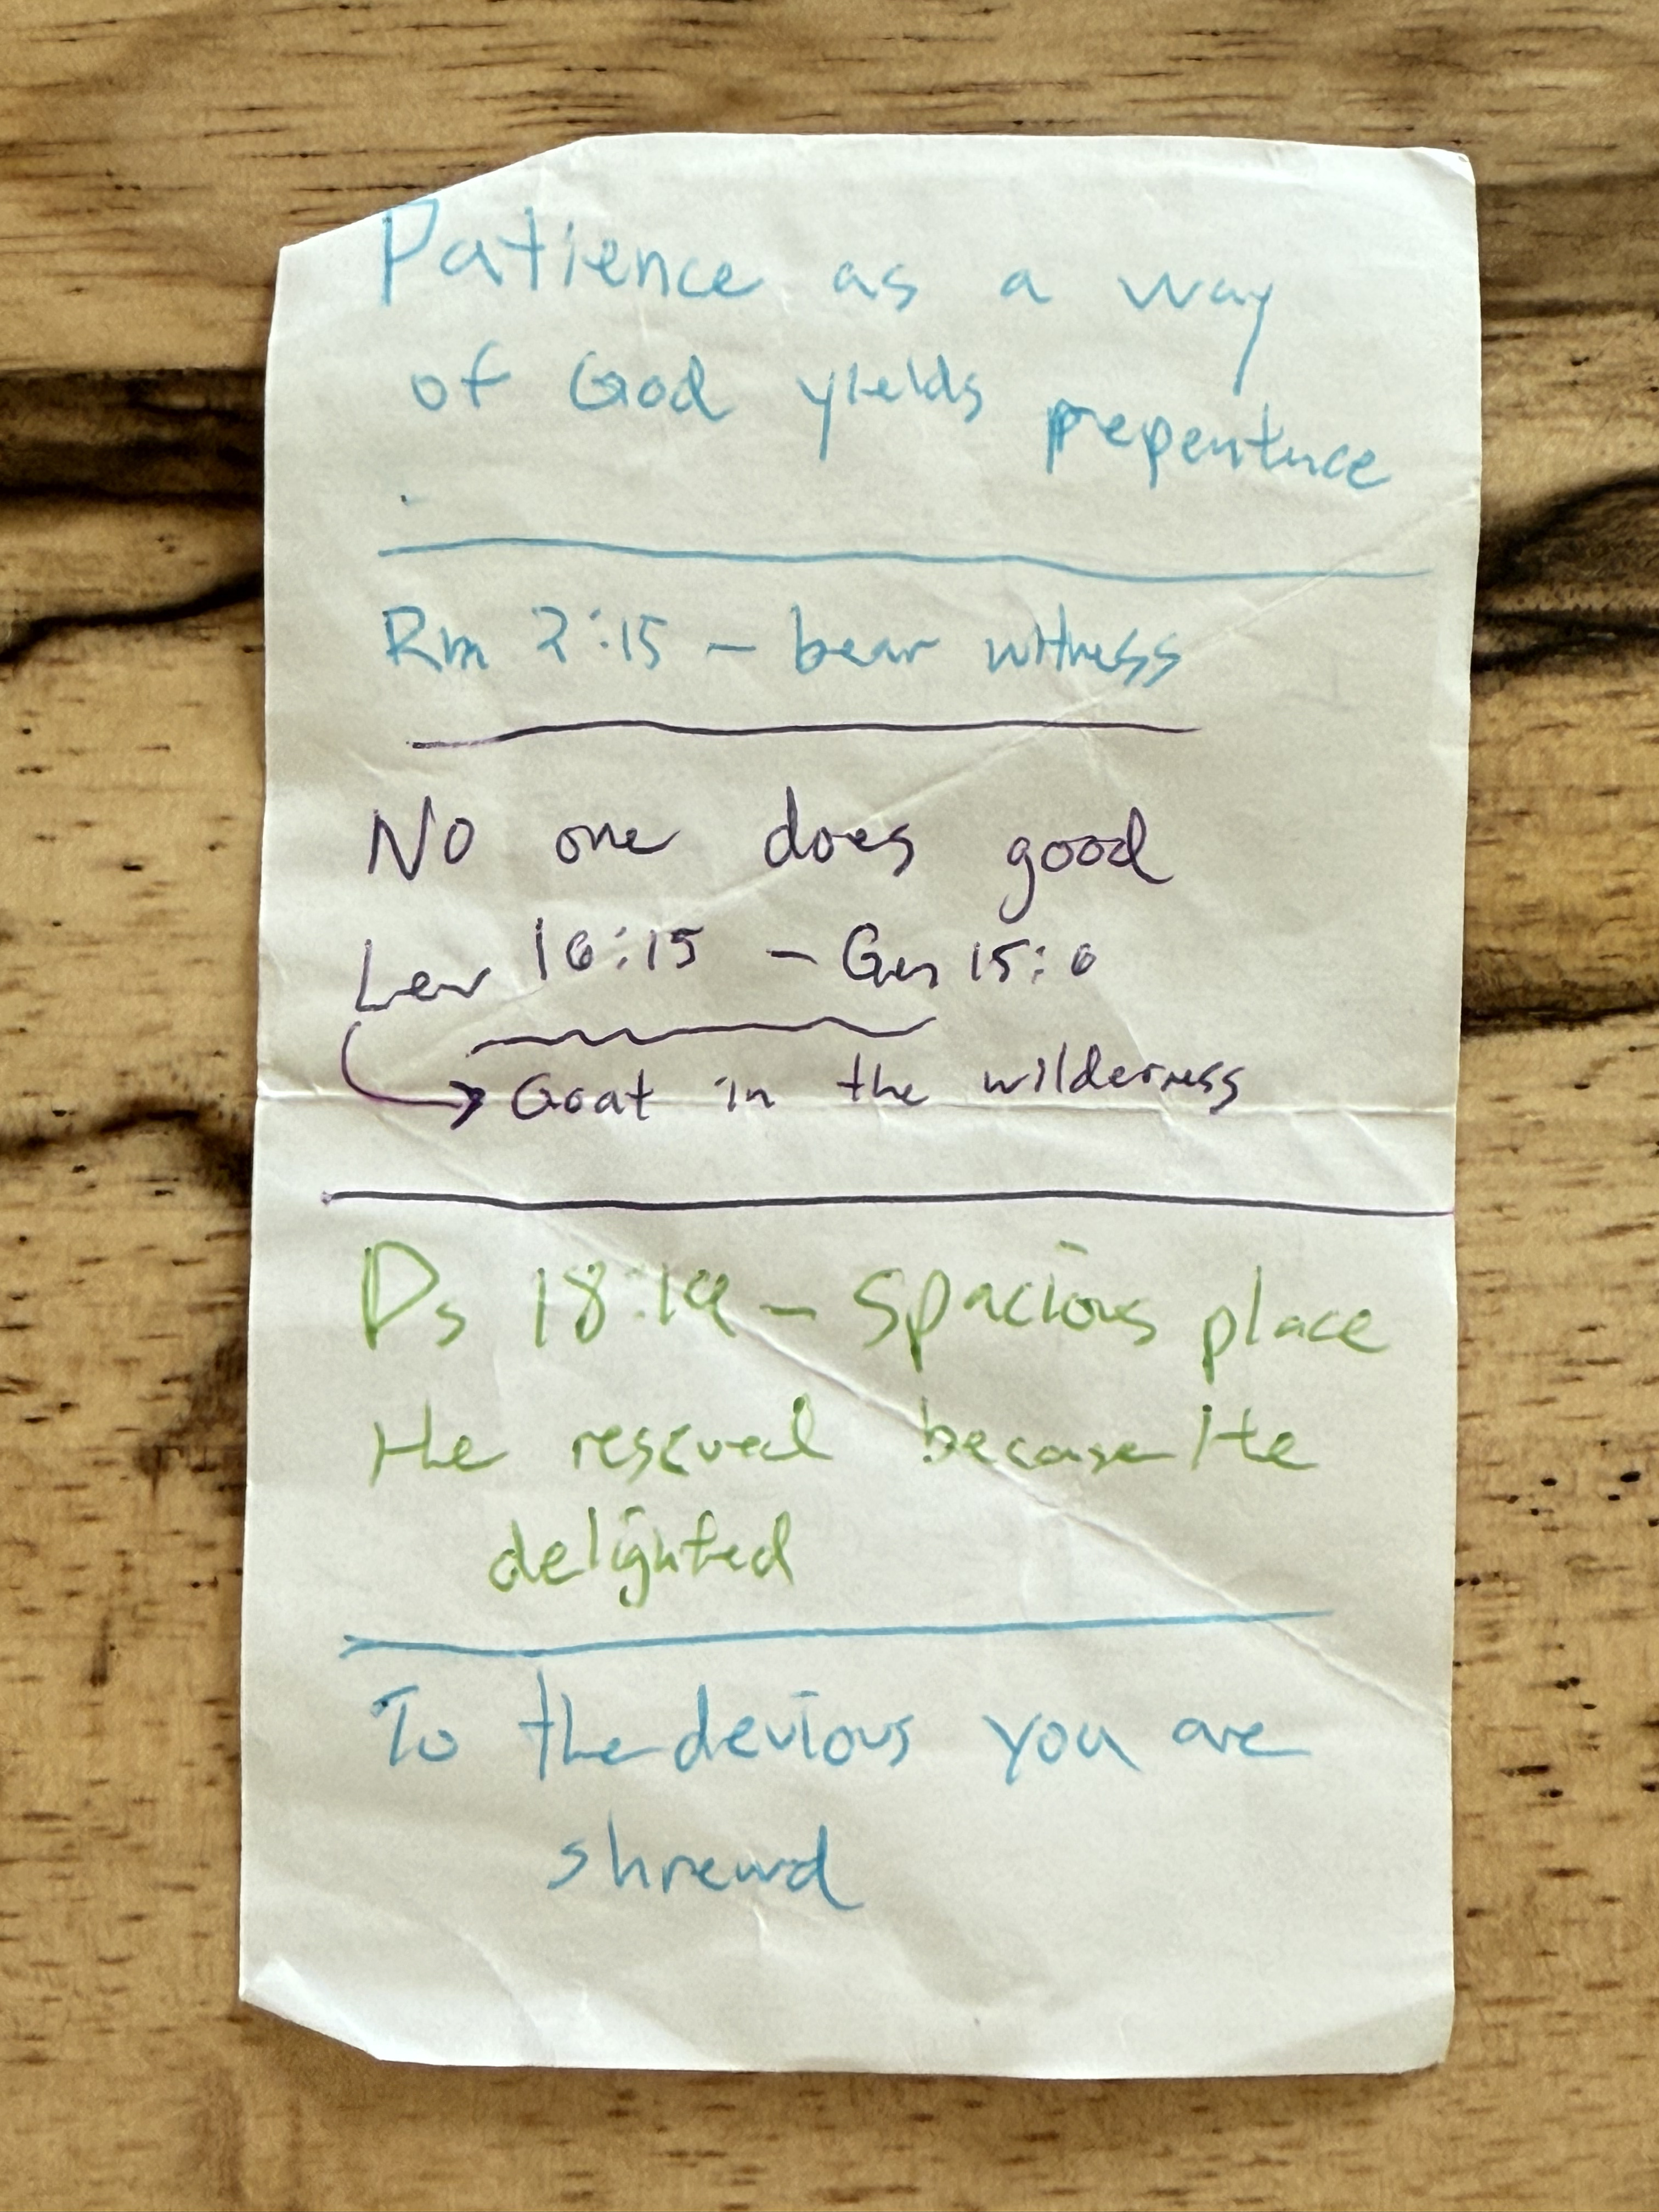 Patience as a way
of God yields prepentnce
Rm 2:15 – bear witness
No one does good
Lev 16:15 – Gen 15:6
Goat in the wilderness
Ps 18:19 – Spacious place
He rescued because He
delighted
To the devious you are
shrewd